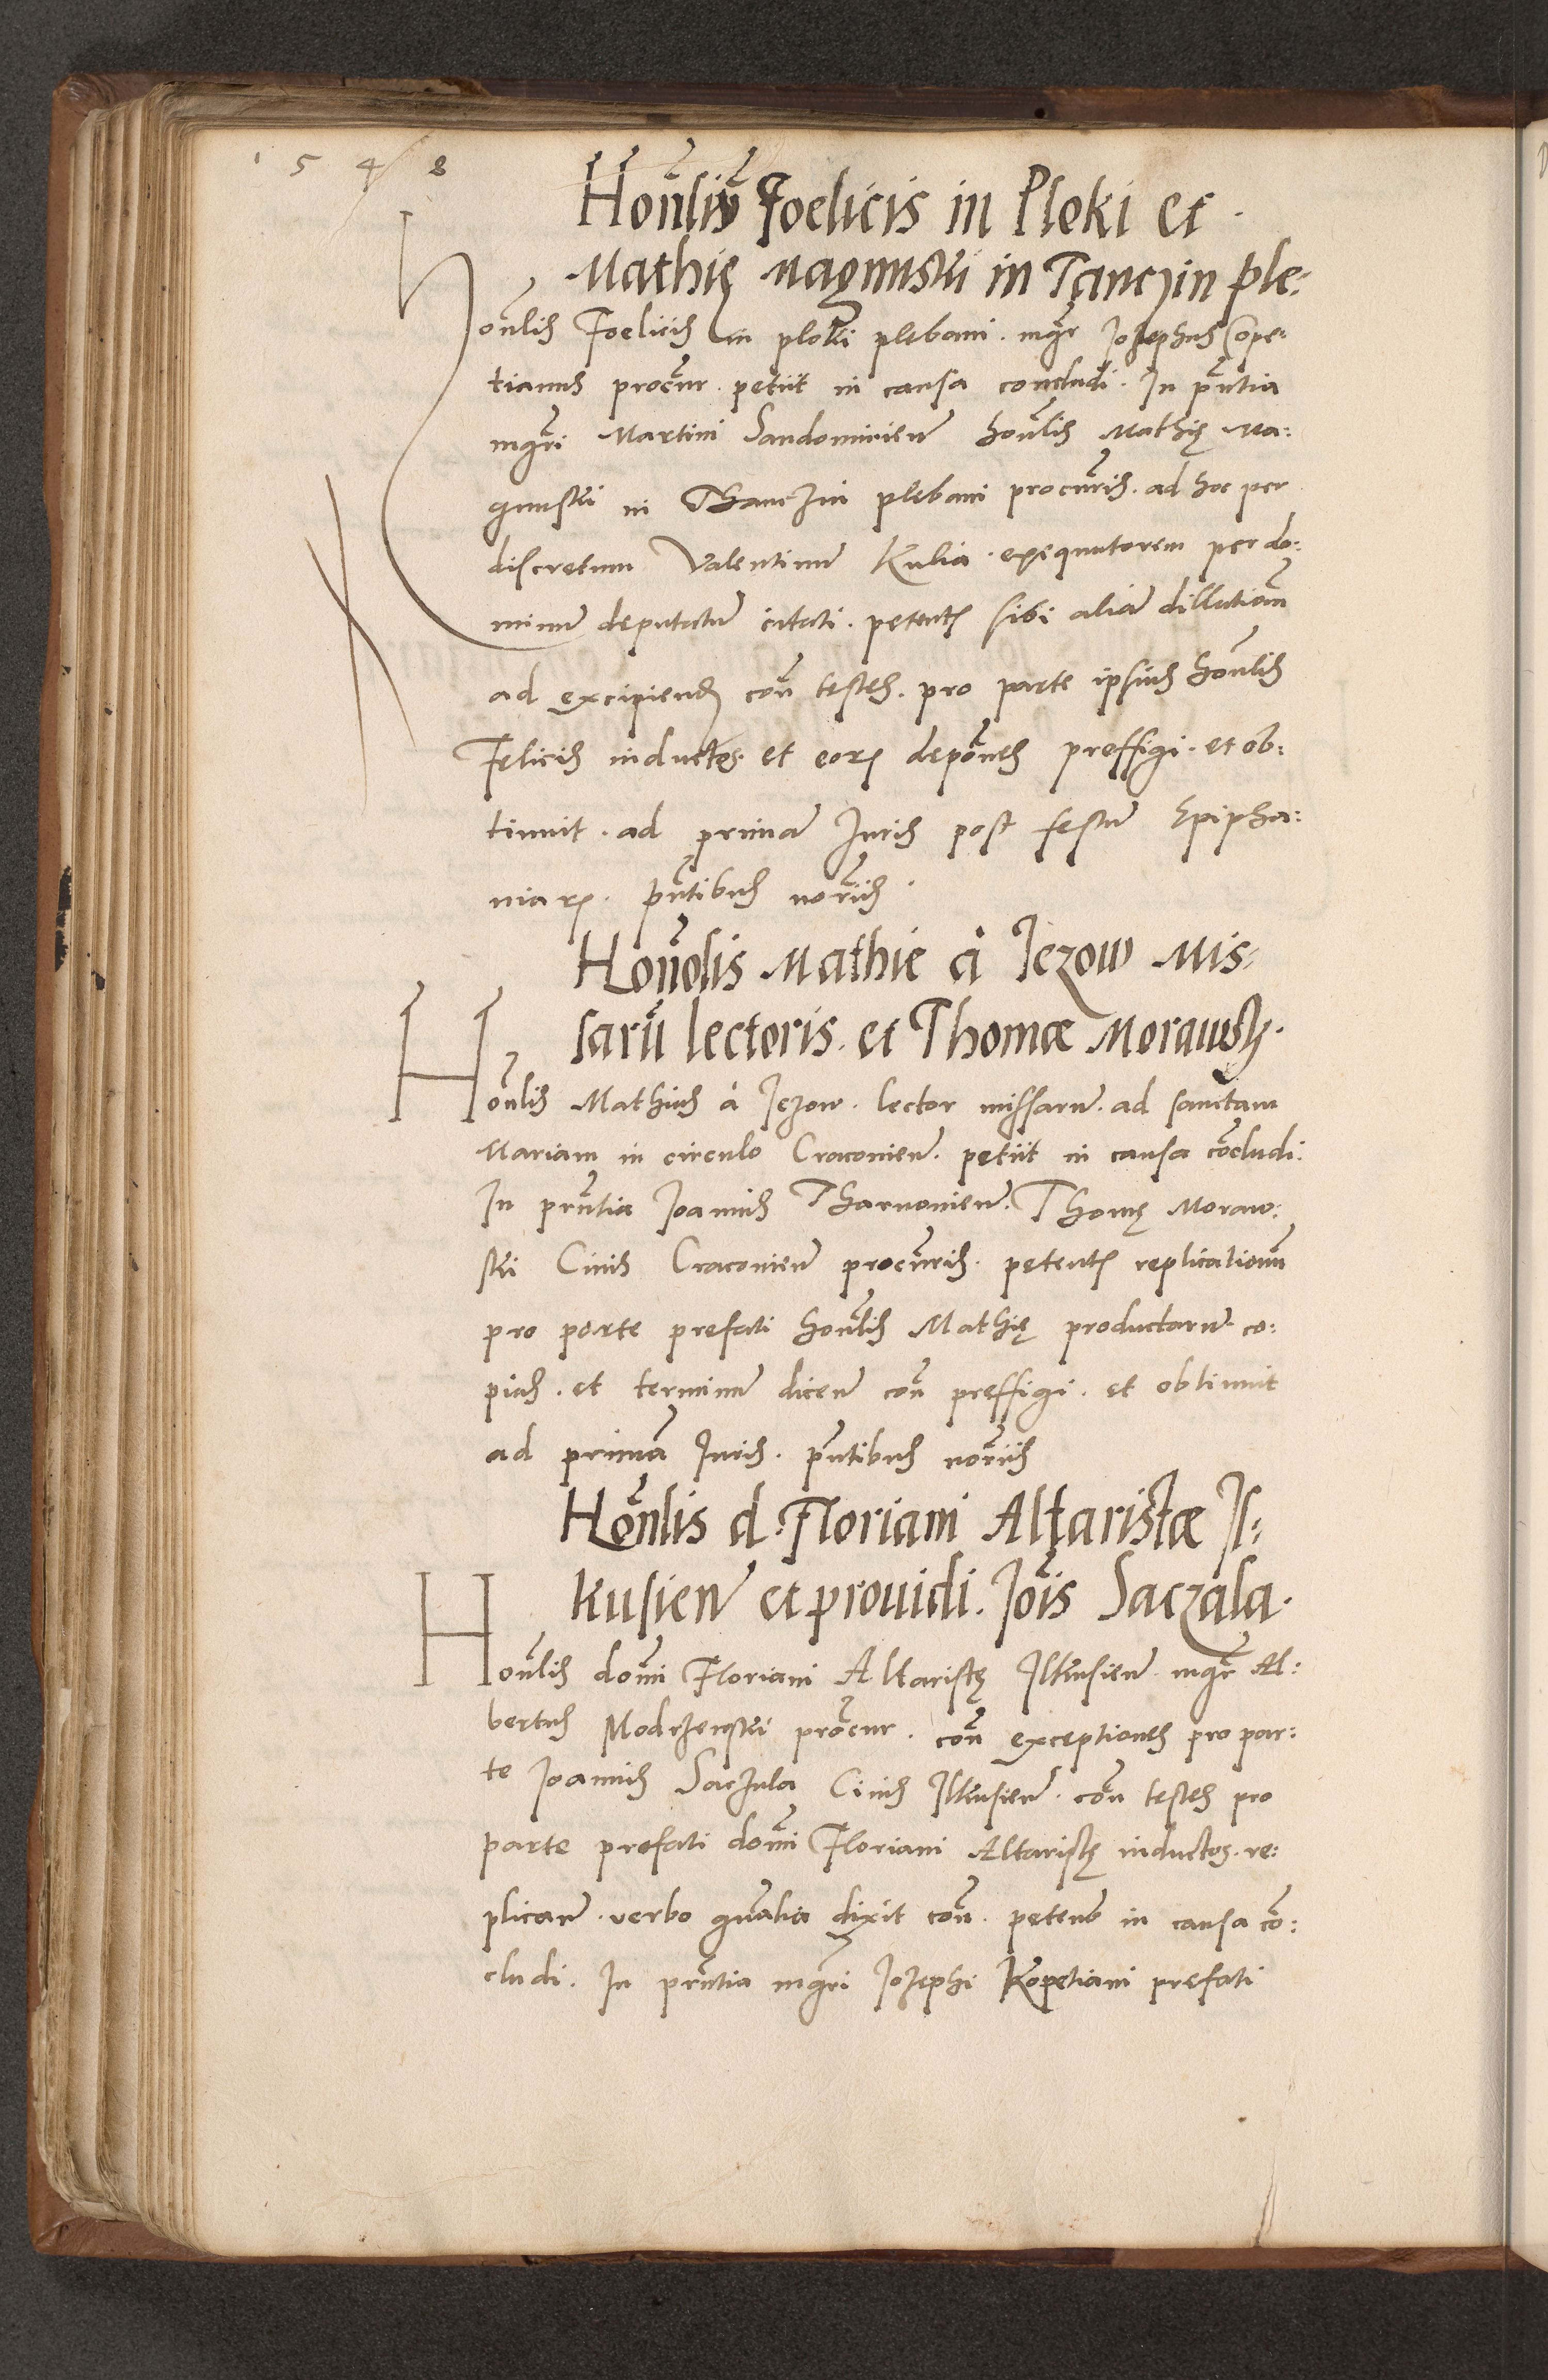 1548
Honliũ Foelicis in Ploki et
Mathię Nagunski in Tanczin ple:
Honlis Foelicis in ploki plebani. mgr Iozephus Cope:
tianus procur. petiit in causa concludi. In pñtia
mgri Martini Sandomirieñ honlis Mathię Na:
gunski in Thanczin plebani procuris. ad hoc per
discretum Valentinũ Kulia. exequutorem per do:
minũ deputatũ citati. petentẽ sibi aliã dillationẽ
ad excipiendũ con testes. pro parte ipsius honlis
Felicis inductos et eorũ deponẽs preffigi. et ob:
tinuit. ad primã Iuris post festũ Epipha:
niarũ. pñtibus noriis
Honolis Mathie à Iezow Mis:
sarũ lectoris. et Thomæ Morawsky.
Honlis Mathias à Iezow. lector missarũ. ad sanctam
Mariam in circulo Cracouieñ. petiit in causa cõcludi.
In prñtia Ioannis Tharnouieñ. Thomę Moraw:
ski Ciuis Cracouieñ procuris. petentẽ replicationũ
pro parte prefati honlis Mathię productarũ co:
pias. et terminũ dicenũ con preffigi. et obtinuit
ad primã Iuris. pñtibus noriis
Honlis d. Floriani Altaristæ Il:
kusieñ et prouidi. Iois Saczala.
Honlis domi Floriani Altaristę Ilkusieñ. mgr Al:
bertus Modrzewski procur. con exceptiones pro par:
te Ioannis Saczula Ciuis Ilkusieñ. con testes pro
parte prefati domi Floriani Altaristę inductos. re:
plicanũ. verbo gñalia dixit con. petens in causa cõ:
cludi. In prñtia mgri Iozephi Kopetiani prefati